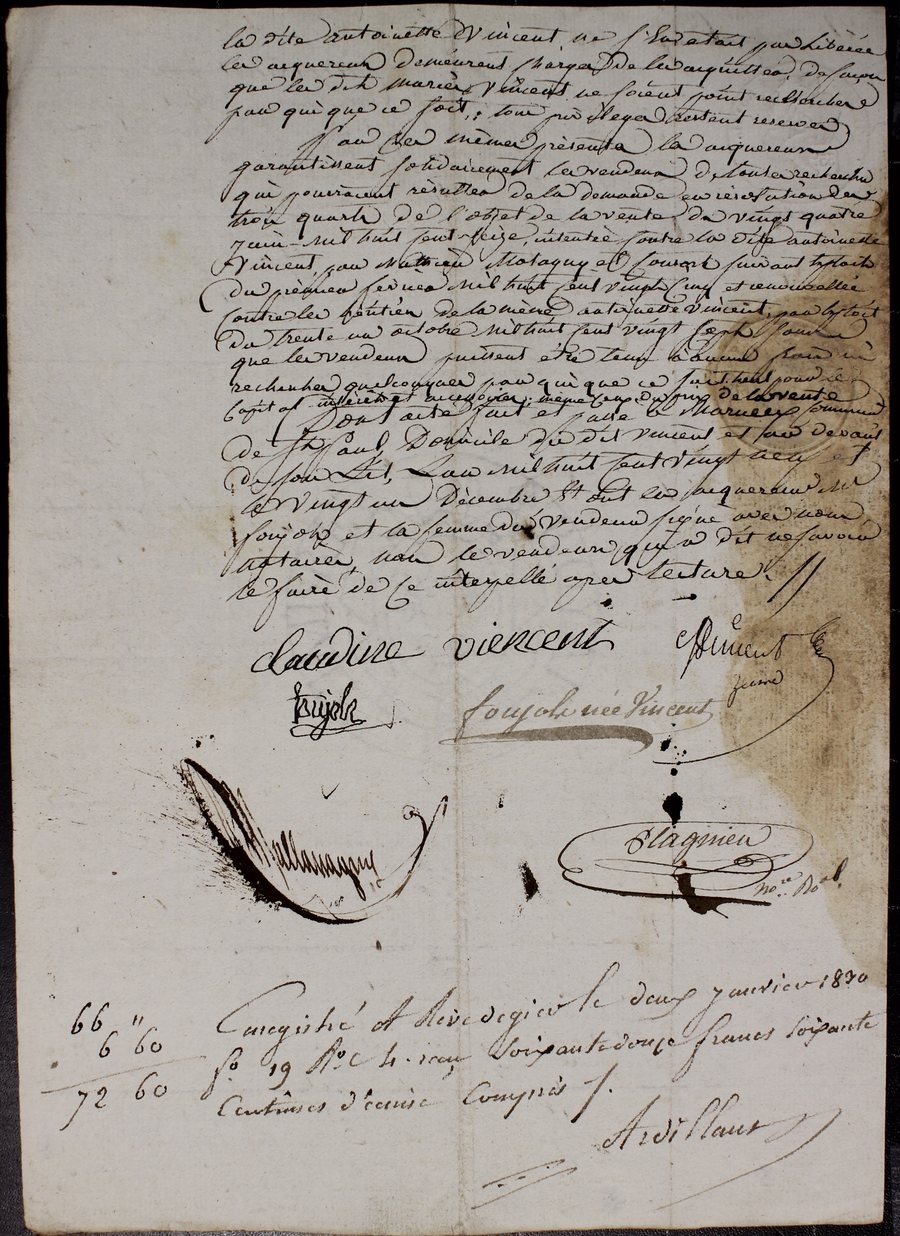 la dite antoinette Vincent ne s'en etait pas Libérée
les acquereurs demeurent chargés de les acquitter, de façon
que les dits mariés Vincent ne soient point recherchés
par qui que ce soit, tous privileges restent reservés
Par ces mêmes présentes les acquereurs
garantissent solidairement les vendeurs de toutes recherches
qui pourraient résulter de la demande en résolution des
trois quarts de l'objet de la vente du vingt quatre
juin mil huit cent seize, intentée contre la dite antoinette
Vincent, par Mathieu et suivant Exploit
du premier fevrier mil huit cent vingt cinq et renouvellée
contre les héritiers de la même antoinette Vincent, par Exploit
du trente un octobre mil huit cent vingt sept sans
que les vendeurs puissent être tenus à aucuns frais ni
recherches quelconques par qui que ce soit tant pour le
Capital intérêts et accessoires, même ceux du prix de la vente
Dont acte fait et passé à commune
de St Paul, Domicile du dit Vincent et au devant
de son Lit, L'an mil huit cent vingt neuf et
le vingt un Décembre Et ont les acquereurs Mr
foujols et la femme du Vendeur signé avec nous
notaires, non le vendeur qui a dit ne savoir
le faire de ce interpellé apres lecture. //
claudine viencent Vincent
foujols née Vincent
Plagnieu
nore Roal
66 "
6 60
72 60
Enregistré à Rive de gier le deux janvier 1830
fo 19 Ro C 4. reçu soixante douze francs soixante
Centimes décime Compris /.
Ardillant